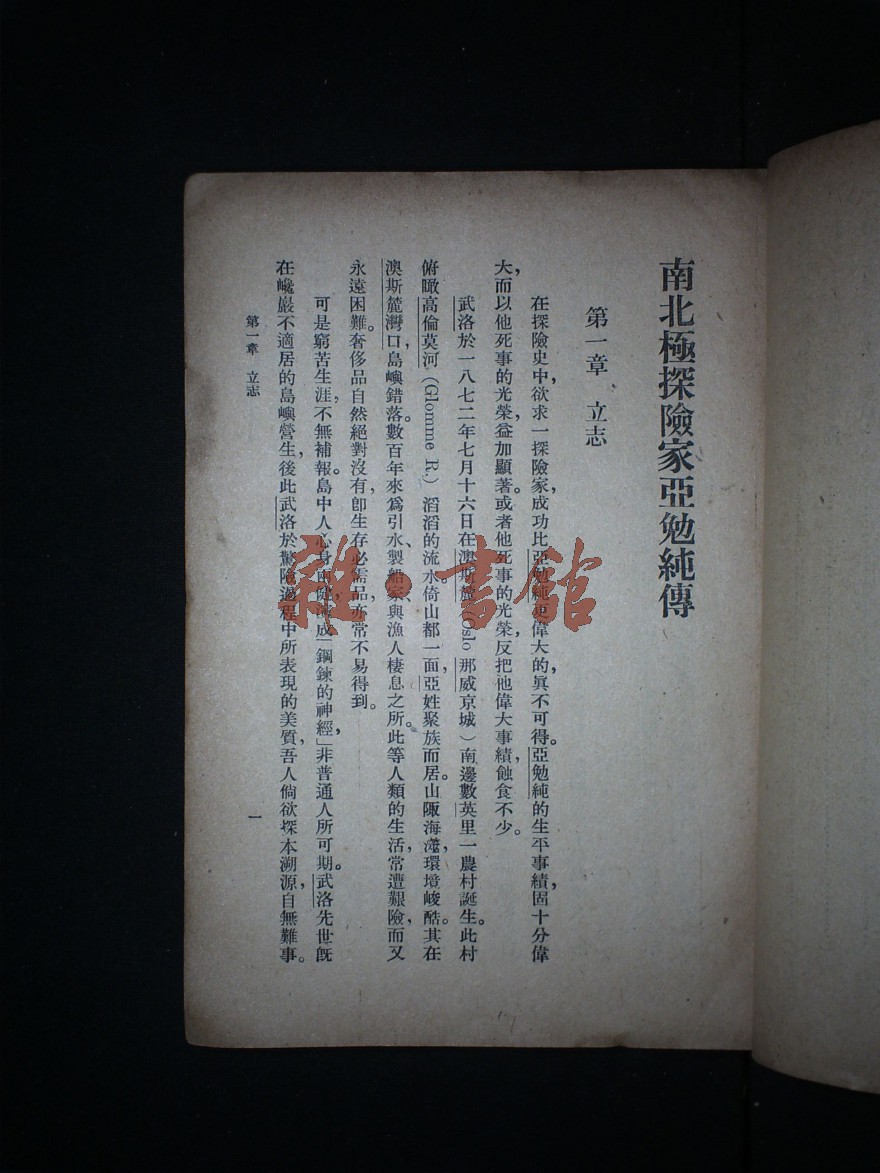 南北極探險家亞勉純傳
第一章 立志
在探險史中,欲求一探險家成功比亞勉純更偉大的,眞不可得。亞勉純的生平事績,固十分偉
大,而以他死事的光榮,益加顯著。或者他死事的光榮,反把他偉大事績蝕食不少。
武洛於一八七二年七月十六日在澳斯麓(Oslo那威京城)南邊數英里一農村誕生。此村
俯瞰高倫莫河(Glomme R.)滔滔的流水。倚山都一面,亞姓聚族而居。山陬海澨,環境峻酷。其在
澳斯麓灣口,島嶼錯落。數百年來爲引水、製船家、與漁人棲息之所。此等人類的生活,常遭艱險,而又
永遠困難。奢侈品自然絕對沒有,卽生存必需品,亦常不易得到。
可是窮苦生涯,不無補報。島中人心身兩健,成「鋼鍊的神經,」非普通人所可期。武洛先世旣
在巉巖不適居的島嶼營生,後此武洛於驚險過程中所表現的美質,吾人倘欲探本溯源,自無難事。
第一章 立志
一
雜·書館